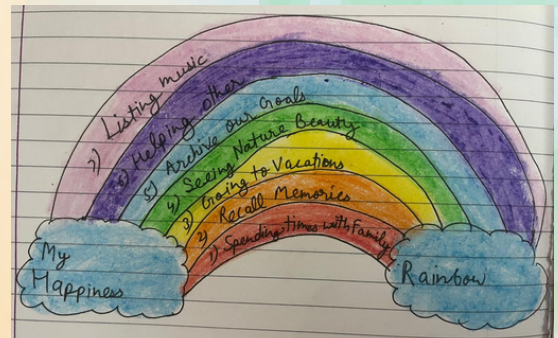 7) Listing music
6) Helping other
5) Archive our Goals
4) Seeing Nature Beauty
3) Going to Vacations
2) Recall Memories
1) Spending times with Family
My
Happiness
Rainbow